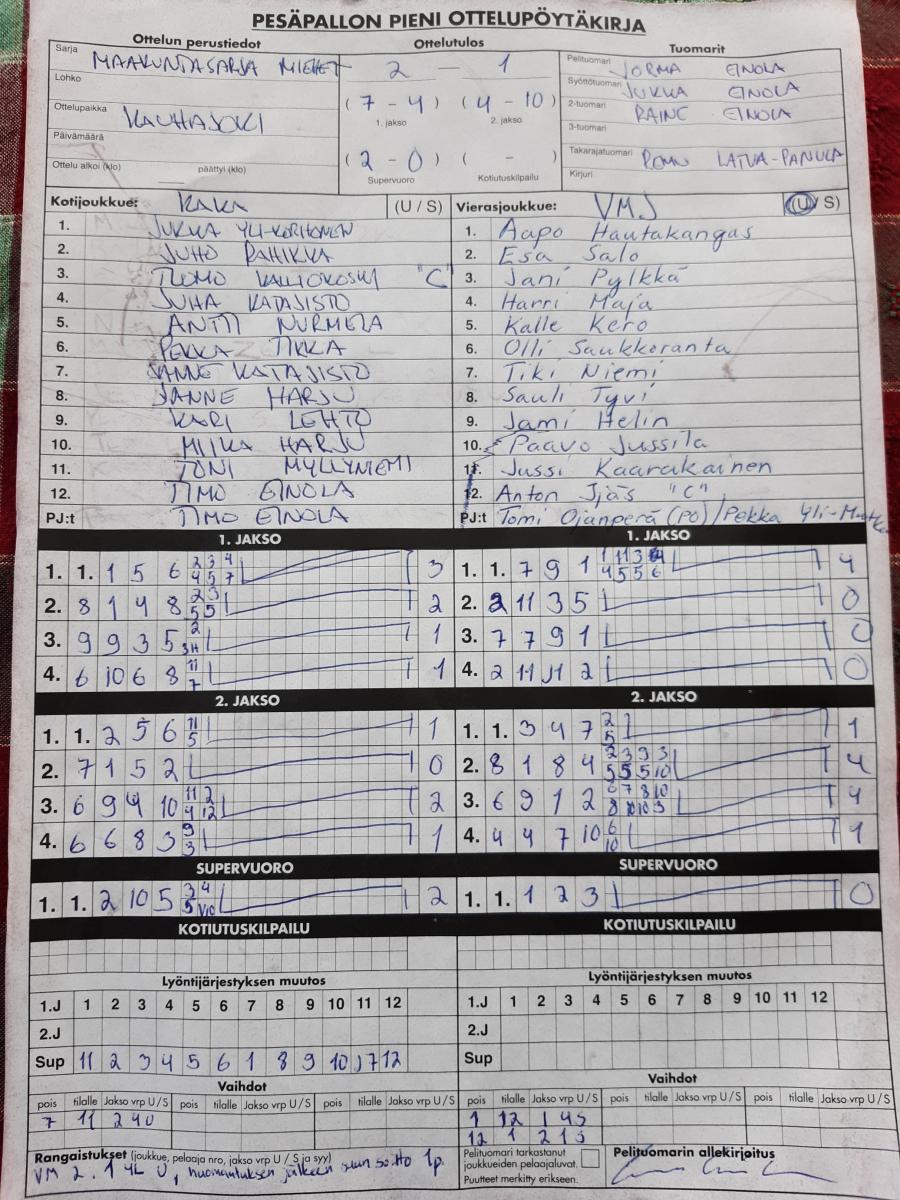 PESÄPALLON PIENI OTTELUPÖYTÄKIRJA
Ottelun perustiedot
Ottelutulos
Tuomarit
Sarja MAAKUNTASARJA MIEHET
Lohko
Ottelupaikka KAUHAJOKI
Päivämäärä
Ottelu alkoi (klo) päättyi (klo)
2 — 1
( 7 - 4 ) ( 4 - 10 )
1. jakso 2. jakso
( 2 - 0 ) ( - )
Supervuoro Kotiutuskilpailu
Pelituomari JORMA EINOLA
Syöttötuomari JUKKA EINOLA
2-tuomari RAINE EINOLA
3-tuomari
Takarajatuomari LATVA-PANULA
Kirjuri
Kotijoukkue: KAKA (U / S)
1. JUKKA YLI-KORHONEN
2. JUHO RAHIKKA
3. TUOMO KALLIOKOSKI "C"
4. JUHA KATAJISTO
5. ANTTI NURMELA
6. PEKKA TIKKA
7. JANNE KATAJISTO
8. JANNE HARJU
9. KARI LEHTO
10. MIIKA HARJU
11. TONI MYLLYNIEMI
12. TIMO EINOLA
PJ:t TIMO EINOLA
Vierasjoukkue: VMJ (U / S)
1. Aapo Hautakangas
2. Esa Salo
3. Jani Pylkkä
4. Harri Maja
5. Kalle Kero
6. Olli Saukkoranta
7. Tiki Niemi
8. Sauli Tyvi
9. Jami Helin
10. Paavo Jussila
11. Jussi Kaarakainen
12. Anton Ijäs "C"
PJ:t Tomi Ojanperä (PO) / Pekka Yli-
1. JAKSO
1. 1. 1 5 6 2 3 4 3
4 5 7
2. 8 1 4 8 2 3 2
5 5
3. 9 9 3 5 2 1
4. 6 10 6 8 11 1
7
1. JAKSO
1. 1. 7 9 1 1 11 3 4 4
4 5 5 6
2. 2 11 3 5 0
3. 7 7 9 1 0
4. 2 11 11 2 0
2. JAKSO
1. 1. 2 5 6 11 1
5
2. 7 1 5 2 0
3. 6 9 4 10 11 2 2
4 12
4. 6 6 8 3 9 1
3
2. JAKSO
1. 1. 3 4 7 2 1
5
2. 8 1 8 4 2 3 9 3 4
5 5 5 10
3. 6 9 1 2 6 7 8 10 4
8 10 10 3
4. 4 4 7 10 6 1
10
SUPERVUORO
1. 1. 2 10 5 3 4 2
5 V10
SUPERVUORO
1. 1. 1 2 3 0
KOTIUTUSKILPAILU
KOTIUTUSKILPAILU
Lyöntijärjestyksen muutos
1.J 1 2 3 4 5 6 7 8 9 10 11 12
2.J
Sup 11 2 3 4 5 6 1 8 9 10 7 12
Lyöntijärjestyksen muutos
1.J 1 2 3 4 5 6 7 8 9 10 11 12
2.J
Sup
Vaihdot
pois tilalle Jakso vrp U / S pois tilalle Jakso vrp U / S pois tilalle Jakso vrp U / S
7 11 2 4 U
Vaihdot
pois tilalle Jakso vrp U / S pois tilalle Jakso vrp U / S pois tilalle Jakso vrp U / S
1 12 1 4 S
12 1 2 1 S
Rangaistukset (joukkue, pelaaja nro, jakso vrp U / S ja syy)
VM 2. 1 4L U, huomautuksen jälkeen suun soitto 1p.
Pelituomari tarkastanut
joukkueiden pelaajaluvat.
Puutteet merkitty erikseen.
Pelituomarin allekirjoitus